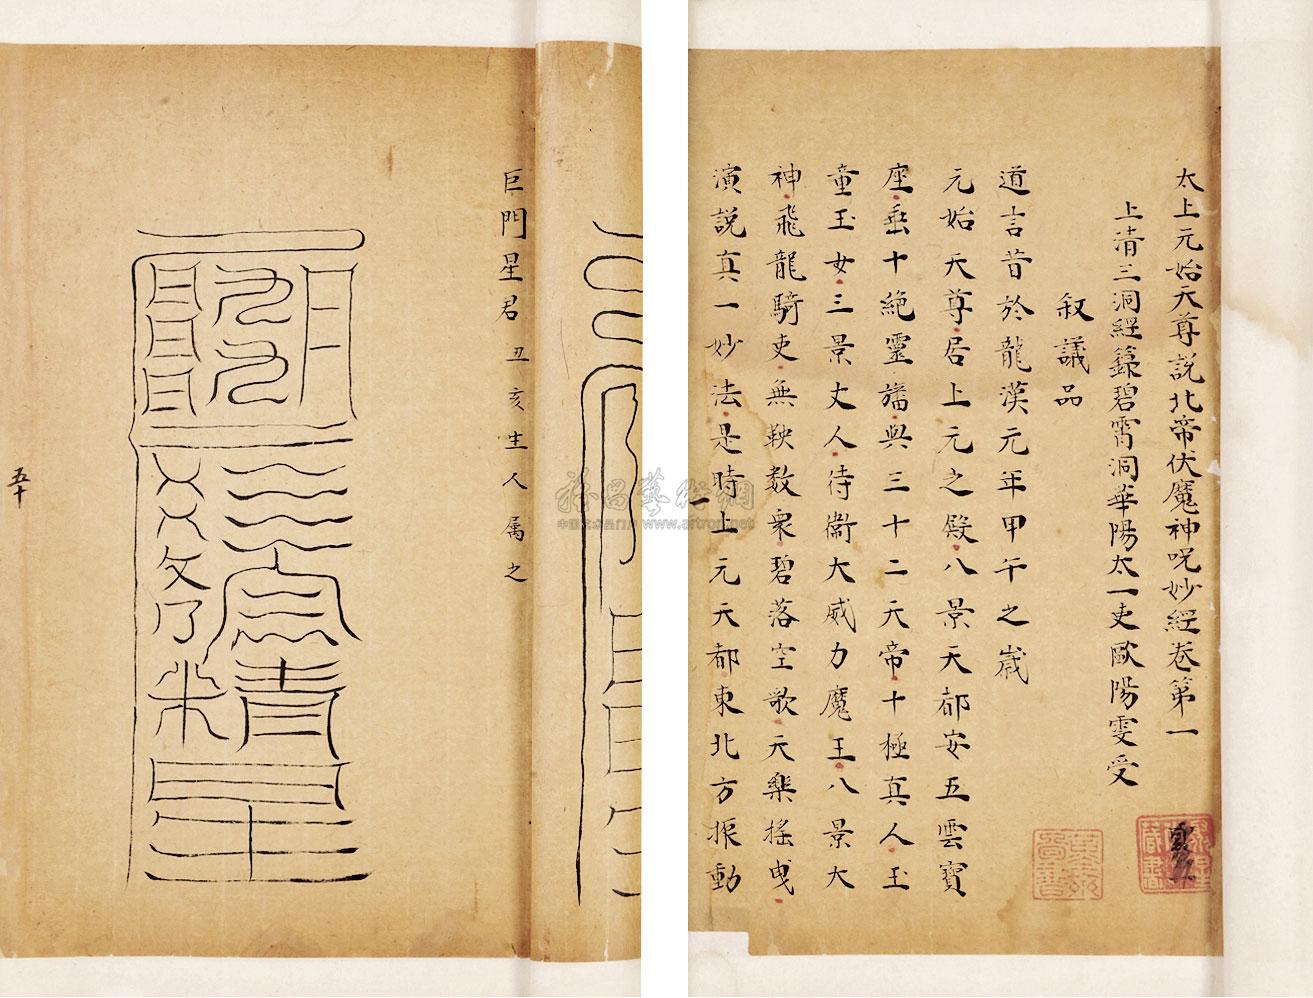 太上元始天尊説北帝伏魔神呪妙經卷第一
上清三洞經籙碧霄洞華陽太一吏歐陽雯受
叙議品
道言昔於龍漢元年甲午之歲
元始天尊居上元之殿八景天都安五雲寶
座垂十絶靈旛與三十二天帝十極真人玉
童玉女三景丈人侍衞大威力魔王八景大
神飛龍騎吏無鞅数衆碧落空歌天樂揺曳
演説真一妙法是時上元天都東北方振動
巨門星君 丑亥生人属之
五十
雅昌藝術網
www.artron.net